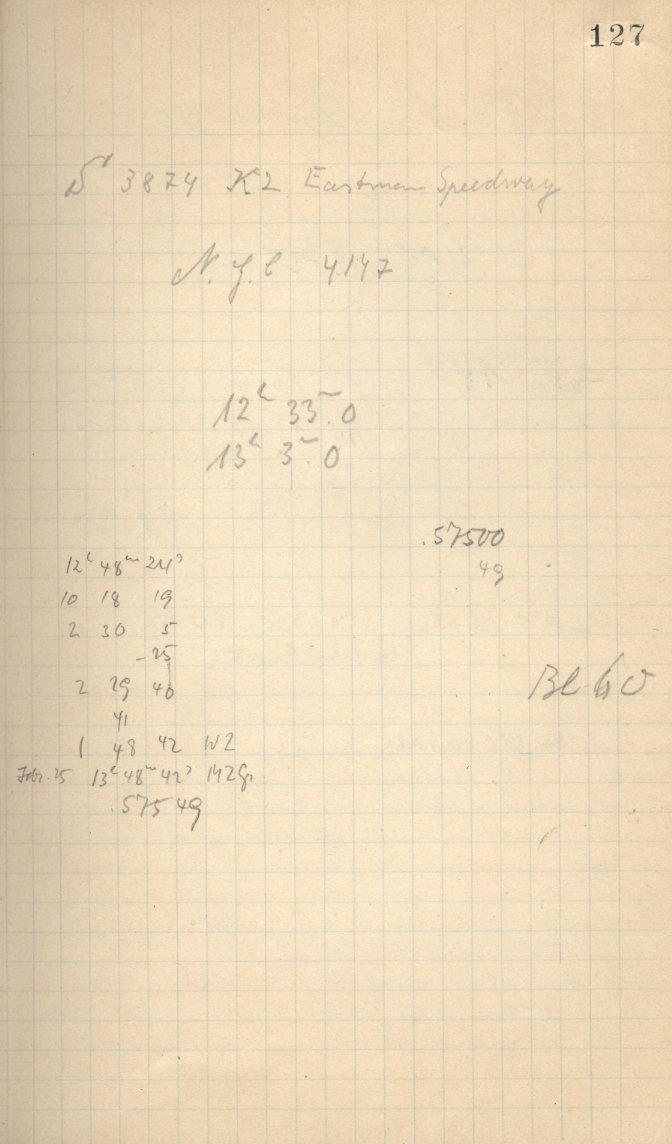 127
D 3874 K2 Eastman Speedway
N. G. C 4147
12ʰ 33ᵐ.0
13ʰ 3ᵐ.0
.57500
49
12ʰ 48ᵐ 24ˢ
10 18 19
2 30 5
-25
2 29 40
41
1 48 42
Febr. 25 13ʰ 48ᵐ 42ˢ MZGr
.57549